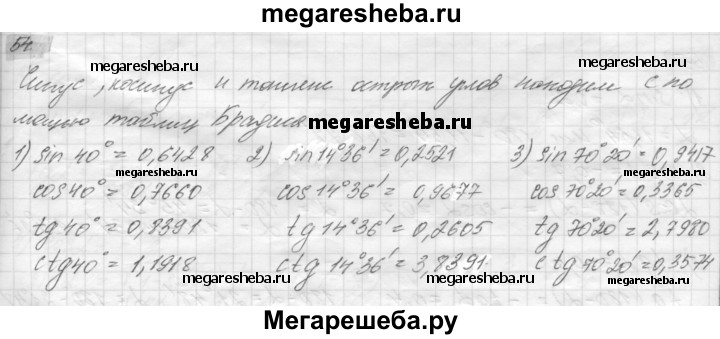 megaresheba.ru
54.
megaresheba.ru megaresheba.ru
Синус, косинус и тангенс острых углов находим с по
мощью таблиц Брадиса megaresheba.ru
1) sin 40° = 0,6428 2) sin 14°36′ = 0,2521 3) sin 70°20′ = 0,9417
megaresheba.ru megaresheba.ru
cos 40° = 0,7660 cos 14°36′ = 0,9677 cos 70°20′ = 0,3365
tg 40° = 0,8391 tg 14°36′ = 0,2605 tg 70°20′ = 2,7980
ctg 40° = 1,1918 ctg 14°36′ = 3,8391 ctg 70°20′ = 0,3574
megaresheba.ru megaresheba.ru
Мегарешеба.ру